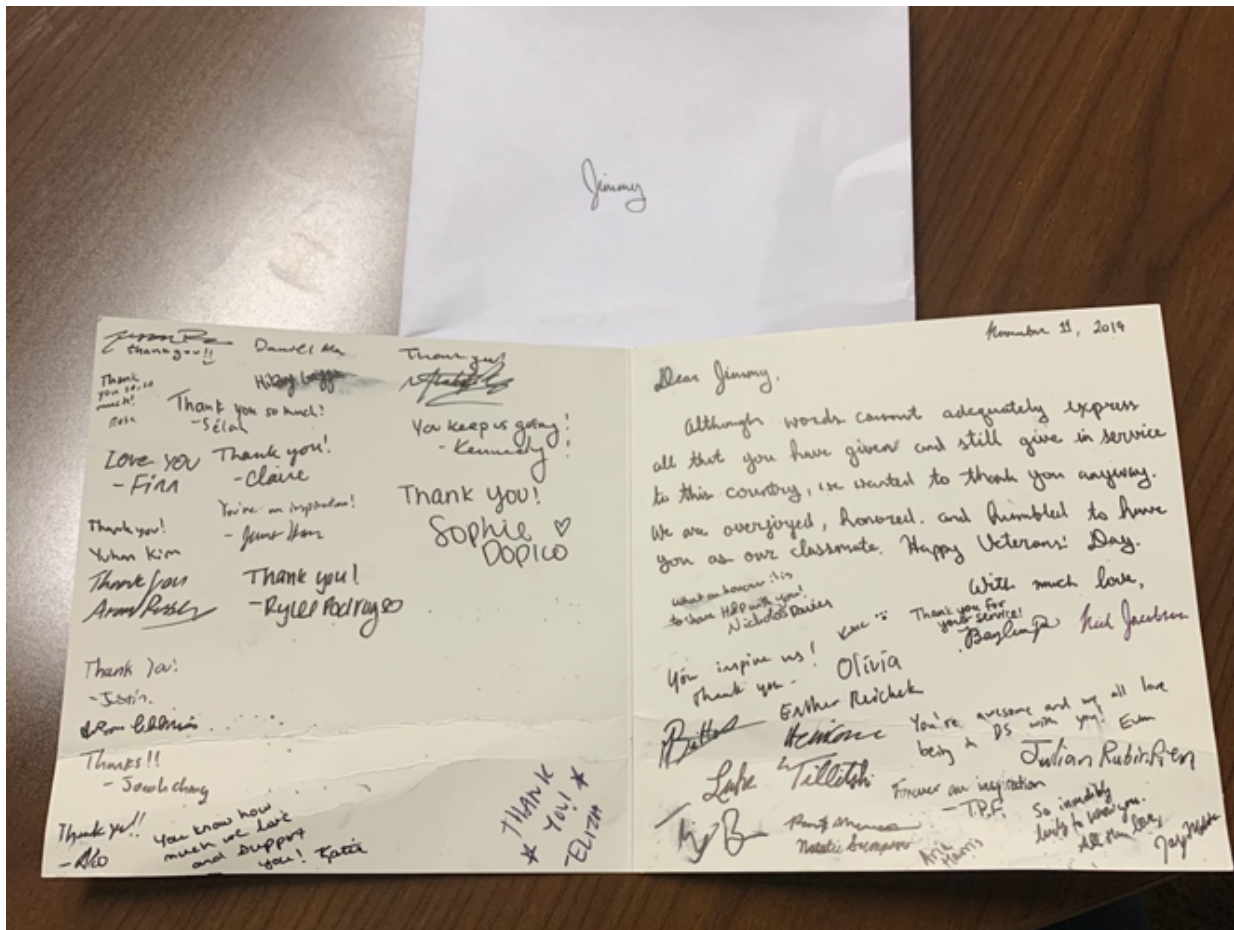 Jimmy
thank you!!
Thank
you so, so
much!
Rose
Daniel Ma
Thank you!
Thank you so much!
- Sélah
You keep us going!
- Kennedy!
Love you
- Finn
Thank you!
- Claire
You're an inspiration!
Thank You!
Sophie ♡
Dopico
Thank you!
Yuhan Kim
Thank you
Thank you!
- Rylee Rodrago
Thank You!
- Justin.
Thanks!!
- Jonah chang
Thank you!!
- Ako
You know how
much we love
and support
you! Katie
* THANK
YOU! *
- ELIZA
November 11, 2019
Dear Jimmy,
Although words cannot adequately express
all that you have given and still give in service
to this country, we wanted to thank you anyway.
We are overjoyed, honored, and humbled to have
you as our classmate. Happy Veterans' Day.
With much love,
What an honour it is
to share H&P with you!
Nicholas Davies
Thank you for
your service!
Nick Jacobson
You inspire us!
Thank you -
Olivia
Esther Reichek
You're awesome and we all love
being in DS with you! Evan
Luke Tillitski
Julian Rubinfien
Forever an inspiration
- T.P.F.
So incredibly
lucky to know you.
All my love,
Aria
Harris